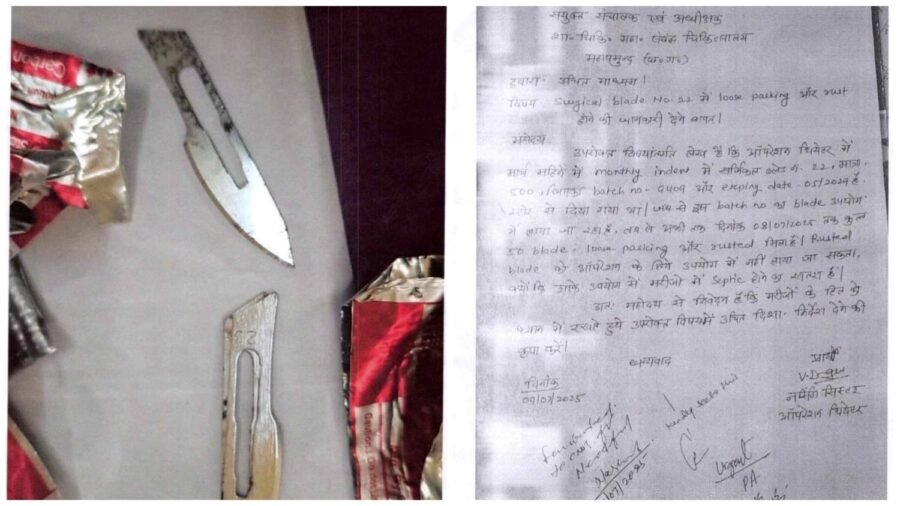 Carbon
22
संयुक्त संचालक एवं अधीक्षक
शा० चिकि० महा० संबद्ध चिकित्सालय
महासमुन्द (छ०ग०)
द्वारा- उचित माध्यम।
विषय- Surgical blade No. 22 में loose packing और rust
होने की जानकारी देने बाबत।
महोदय,
उपरोक्त विषयांतर्गत लेख है कि ऑपरेशन थियेटर में
मार्च महिने में monthly indent में सर्जिकल ब्लेड नं. 22, मात्रा-
500, जिसका batch no- G409 और expiry date- 05/2029 है.
स्टोर से दिया गया था। जब से इस batch no का blade उपयोग
में लाया जा रहा है, तब से अभी तक दिनांक 08/07/2025 तक कुल
50 blade, loose packing और rusted मिला है। Rusted
blade को ऑपरेशन के लिये उपयोग में नहीं लाया जा सकता,
क्योंकि उनके उपयोग से मरीजों में septic होने का खतरा है।
अतः महोदय से निवेदन है कि मरीजों के हित को
ध्यान में रखते हुये उपरोक्त विषय में उचित दिशा-निर्देश देने की
कृपा करें।
धन्यवाद
दिनांक
09/07/2025
प्रार्थी
नर्सिंग सिस्टर
ऑपरेशन थियेटर
/07/2025
Urgent
PA